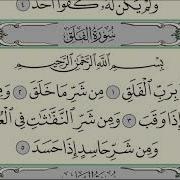 وَلَمْ يَكُن لَّهُۥ كُفُوًا أَحَدٌۢ ٤
سُورَةُ الفَلَقِ
بِسْمِ ٱللَّهِ ٱلرَّحْمَٰنِ ٱلرَّحِيمِ
بِرَبِّ ٱلْفَلَقِ ١ مِن شَرِّ مَا خَلَقَ ٢ وَ
إِذَا وَقَبَ ٣ وَمِن شَرِّ ٱلنَّفَّٰثَٰتِ فِى ٱلْعُ
وَمِن شَرِّ حَاسِدٍ إِذَا حَسَدَ ٥